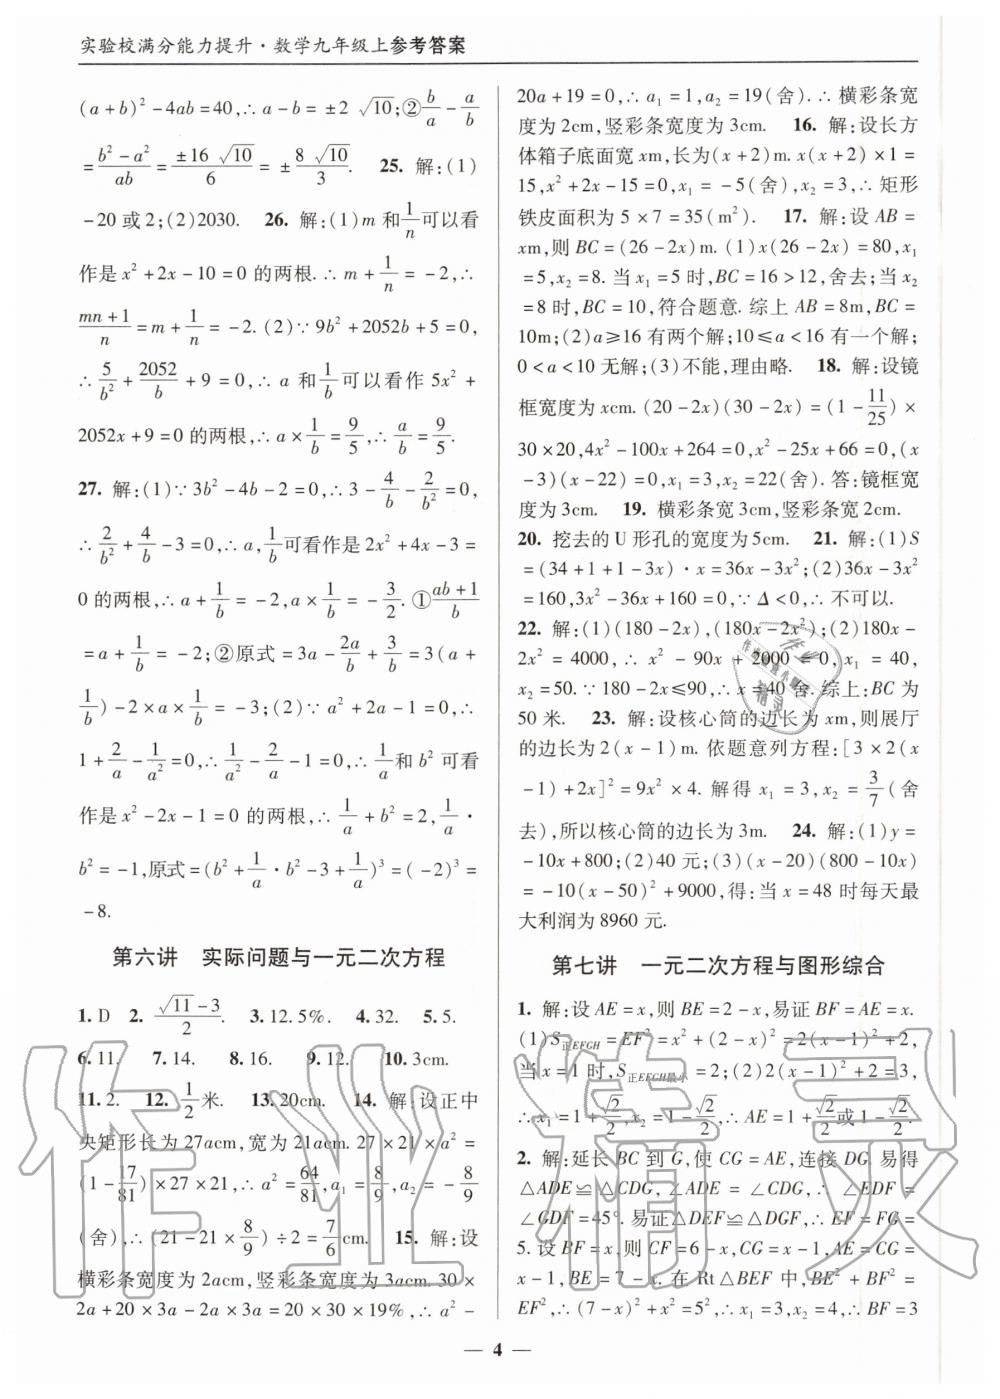 实验校满分能力提升·数学九年级上参考答案
(a+b)²-4ab=40,∴a-b=±2√10;②b/a-a/b
=(b²-a²)/ab=±16√10/6=±8√10/3. 25. 解:(1)
-20或2;(2)2030. 26. 解:(1)m和1/n可以看
作是x²+2x-10=0的两根.∴m+1/n=-2,∴
(mn+1)/n=m+1/n=-2.(2)∵9b²+2052b+5=0,
∴5/b²+2052/b+9=0,∴a和1/b可以看作5x²+
2052x+9=0的两根,∴a×1/b=9/5,∴a/b=9/5.
27. 解:(1)∵3b²-4b-2=0,∴3-4/b-2/b²=0,
∴2/b²+4/b-3=0,∴a,1/b可看作是2x²+4x-3=
0的两根,∴a+1/b=-2,a×1/b=-3/2.①(ab+1)/b
=a+1/b=-2;②原式=3a-2a/b+3/b=3(a+
1/b)-2×a×1/b=-3;(2)∵a²+2a-1=0,∴
1+2/a-1/a²=0,∴1/a²-2/a-1=0,∴1/a和b²可看
作是x²-2x-1=0的两根,∴1/a+b²=2,1/a·
b²=-1,原式=(b²+1/a·b²-3+1/a)³=(-2)³=
-8.
第六讲 实际问题与一元二次方程
1. D 2. (√11-3)/2. 3. 12.5%. 4. 32. 5. 5.
6. 11. 7. 14. 8. 16. 9. 12. 10. 3cm.
11. 2. 12. 1/2米. 13. 20cm. 14. 解:设正中
央矩形长为27acm,宽为21acm.27×21×a²=
(1-17/81)×27×21,∴a²=64/81,a₁=8/9,a₂=-8/9
(舍),∴(21-21×8/9)÷2=7/6cm. 15. 解:设
横彩条宽度为2acm,竖彩条宽度为3acm.30×
2a+20×3a-2a×3a=20×30×19%,∴a²-
20a+19=0,∴a₁=1,a₂=19(舍).∴横彩条宽
度为2cm,竖彩条宽度为3cm. 16. 解:设长方
体箱子底面宽xm,长为(x+2)m.x(x+2)×1=
15,x²+2x-15=0,x₁=-5(舍),x₂=3,∴矩形
铁皮面积为5×7=35(m²). 17. 解:设AB=
xm,则BC=(26-2x)m.(1)x(26-2x)=80,x₁
=5,x₂=8.当x₁=5时,BC=16>12,舍去;当x₂
=8时,BC=10,符合题意.综上AB=8m,BC=
10m;(2)a≥16有两个解;10≤a<16有一个解;
0<a<10无解;(3)不能,理由略. 18. 解:设镜
框宽度为xcm.(20-2x)(30-2x)=(1-11/25)×
30×20,4x²-100x+264=0,x²-25x+66=0,(x
-3)(x-22)=0,x₁=3,x₂=22(舍).答:镜框宽
度为3cm. 19. 横彩条宽3cm,竖彩条宽2cm.
20. 挖去的U形孔的宽度为5cm. 21. 解:(1)S
=(34+1+1-3x)·x=36x-3x²;(2)36x-3x²
=160,3x²-36x+160=0,∵Δ<0,∴不可以.
22. 解:(1)(180-2x),(180x-2x²);(2)180x-
2x²=4000,∴x²-90x+2000=0,x₁=40,
x₂=50.∵180-2x≤90,∴x=40舍.综上:BC为
50米. 23. 解:设核心筒的边长为xm,则展厅
的边长为2(x-1)m.依题意列方程:[3×2(x
-1)+2x]²=9x²×4.解得x₁=3,x₂=3/7(舍
去),所以核心筒的边长为3m. 24. 解:(1)y=
-10x+800;(2)40元;(3)(x-20)(800-10x)
=-10(x-50)²+9000,得:当x=48时每天最
大利润为8960元.
第七讲 一元二次方程与图形综合
1. 解:设AE=x,则BE=2-x,易证BF=AE=x.
(1)S正EFGH=EF²=x²+(2-x)²=2(x-1)²+2,
当x=1时,S正EFGH最小=2;(2)2(x-1)²+2=3,
∴x₁=1+√2/2,x₂=1-√2/2,∴AE=1+√2/2或1-√2/2.
2. 解:延长BC到G,使CG=AE,连接DG.易得
△ADE≌△CDG,∠ADE=∠CDG,∴∠EDF=
∠GDF=45°.易证△DEF≌△DGF,∴EF=FG=
5.设BF=x,则CF=6-x,CG=AE=
x-1,BE=7-x.在Rt△BEF中,BE²+BF²=
EF²,∴(7-x)²+x²=5²,∴x₁=3,x₂=4,∴BF=3
— 4 —
作业精灵